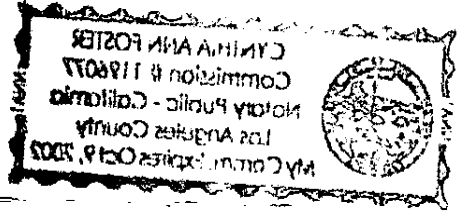 CYNTHIA ANN FOSTER
Commission # 1196077
Notary Public - California
Los Angeles County
My Comm. Expires Oct 9, 2002